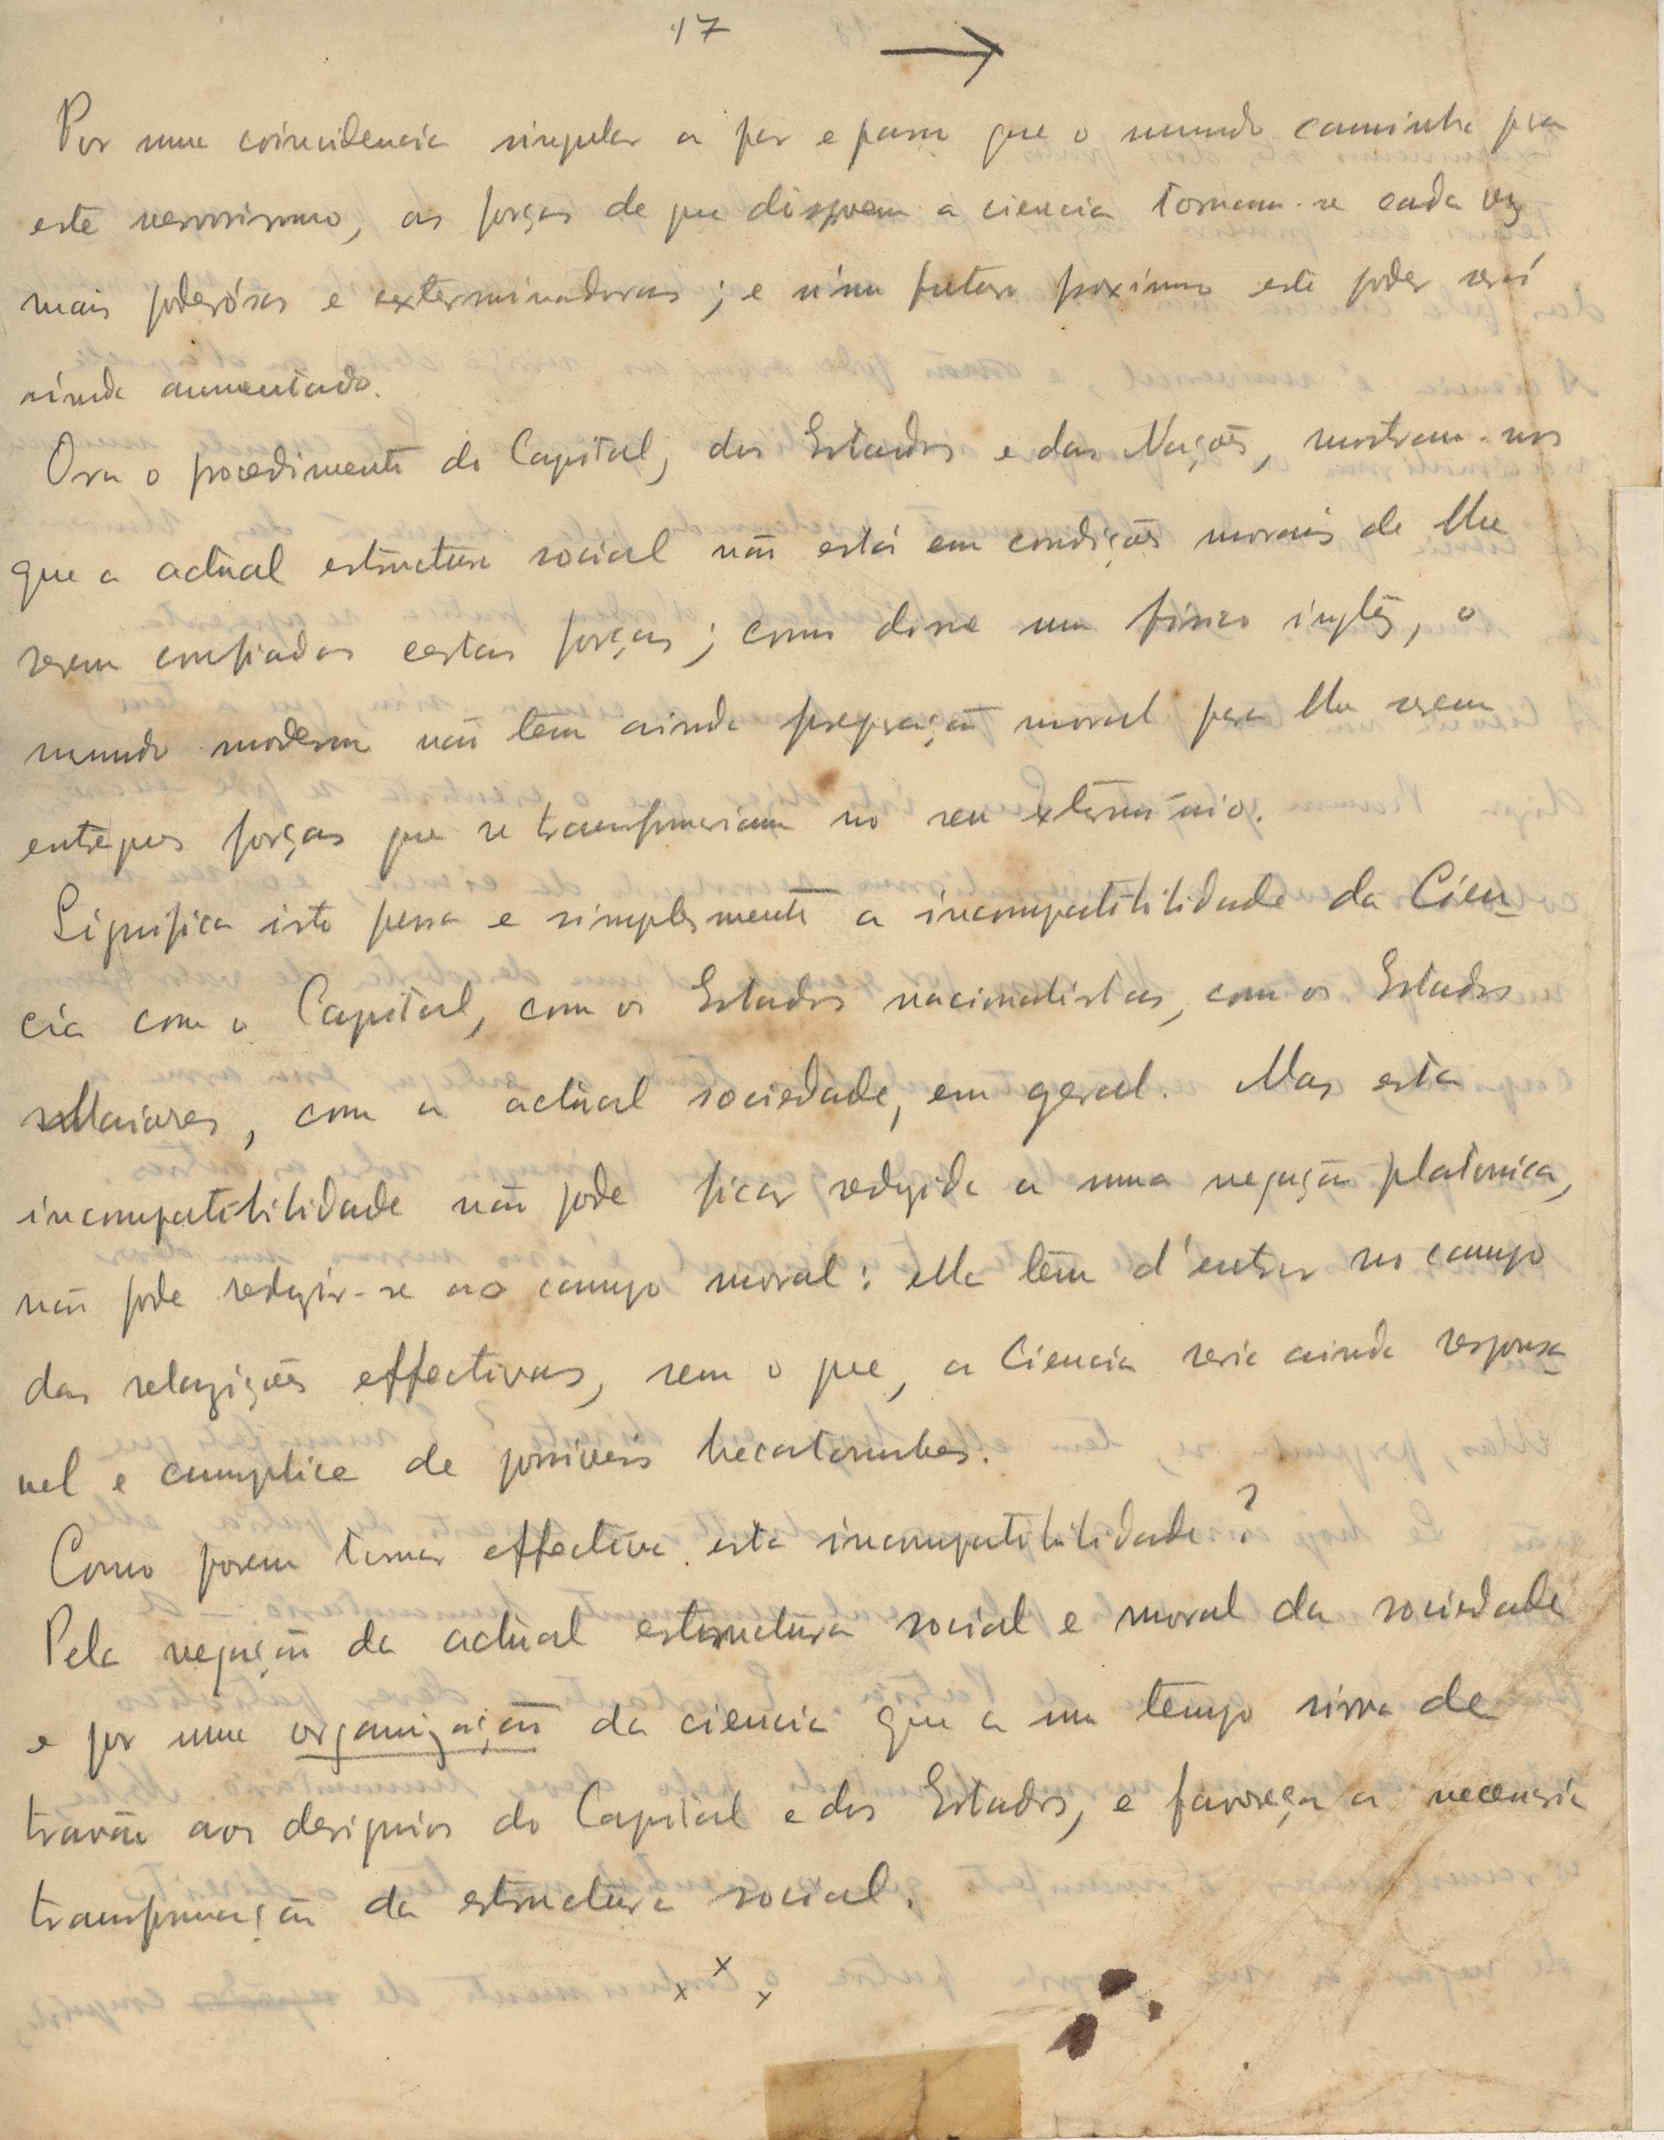 17 →
Por uma coincidencia singular a par e passo que o mundo caminha para
este nervosismo, as forças de que dispoem a ciencia tornam-se cada vez
mais poderósas e exterminadoras; e n'um futuro proximo este poder será
ainda aumentado.
Ora o procedimento do Capital, dos Estados e das Nações, mostram-nos
que a actual estructura social não está em condições moraes de lhe
serem confiadas certas forças; como disse um fisico inglês, o
mundo moderno não tem ainda preparação moral para lhe serem
entregues forças que se transformariam no seu exterminio.
Significa isto pura e simplesmente a incompatibilidade da Cien-
cia com o Capital, com os Estados nacionalistas, com os Estados
com a actual sociedade, em geral. Mas esta
incompatibilidade não pode ficar reduzida a uma negação platonica,
não pode reduzir-se ao campo moral: ella tem d'entrar no campo
das effectivas, sem o que, a Ciencia seria ainda responsa
vel e cumplice de possiveis hecatombes.
Como porem tornar effectiva esta incompatibilidade?
Pela negação da actual estructura social e moral da sociedade
e por uma organização da ciencia que a um tempo sirva de
travão aos designios do Capital e dos Estados, e favoreça a necessaria
transformação da estructura social.
x x x